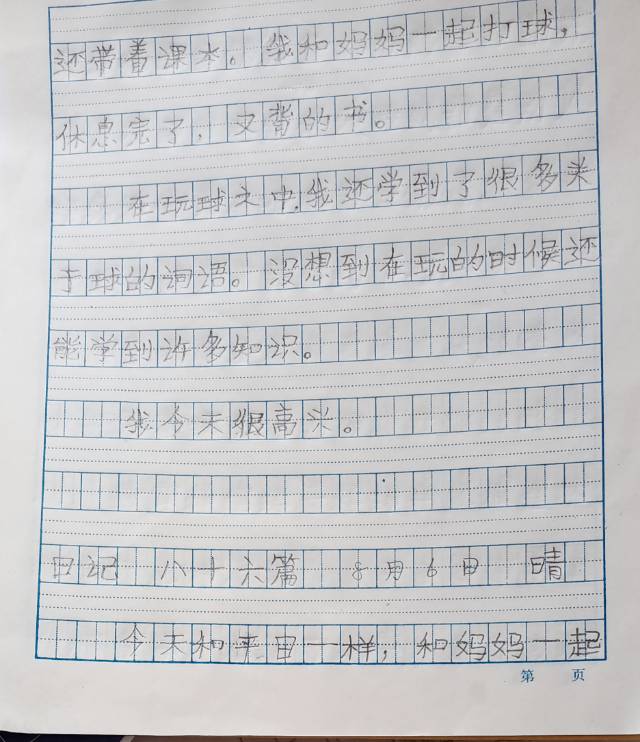 还带着课本。我和妈妈一起打球，
休息完了，又背的书。
在玩球之中，我还学到了很多关
于球的词语。没想到在玩的时候还
能学到许多知识。
我今天很高兴。
日记 八十六篇 8月6日 晴
今天和平日一样，和妈妈一起
第 页